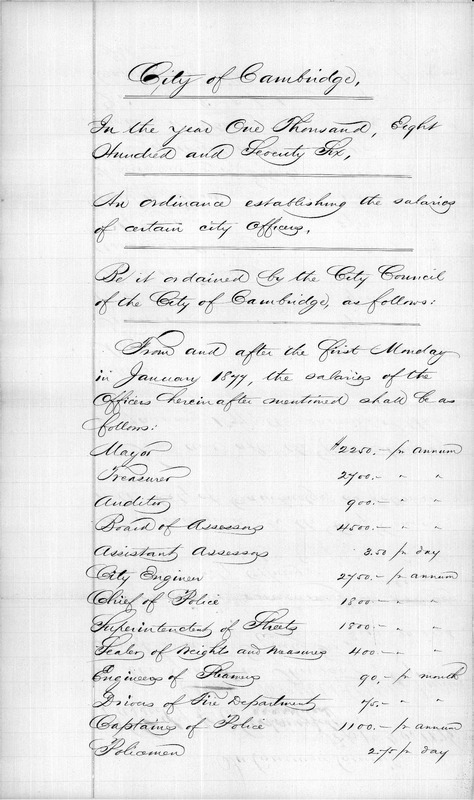 City of Cambridge,
In the year One Thousand, Eight
Hundred and Seventy Six,
An ordinance establishing the salaries
of certain city officers,
Be it ordained by the City Council
of the City of Cambridge, as follows:
From and after the first Monday
in January 1877, the salaries of the
Officers hereinafter mentioned shall be as
follows:
Mayor $2250.– pr annum
Treasurer 2700.– " "
Auditor 900.– " "
Board of Assessors 4500.– " "
Assistant Assessors 3.50 pr day
City Engineer 2750.– pr annum
Chief of Police 1800.– " "
Superintendent of Streets 1800.– " "
Sealer of Weights and Measures 400.– " "
Engineers of Steamers 90.– pr month
Drivers of Fire Department 75.– " "
Captains of Police 1100.– pr annum
Policemen 2.75 pr day